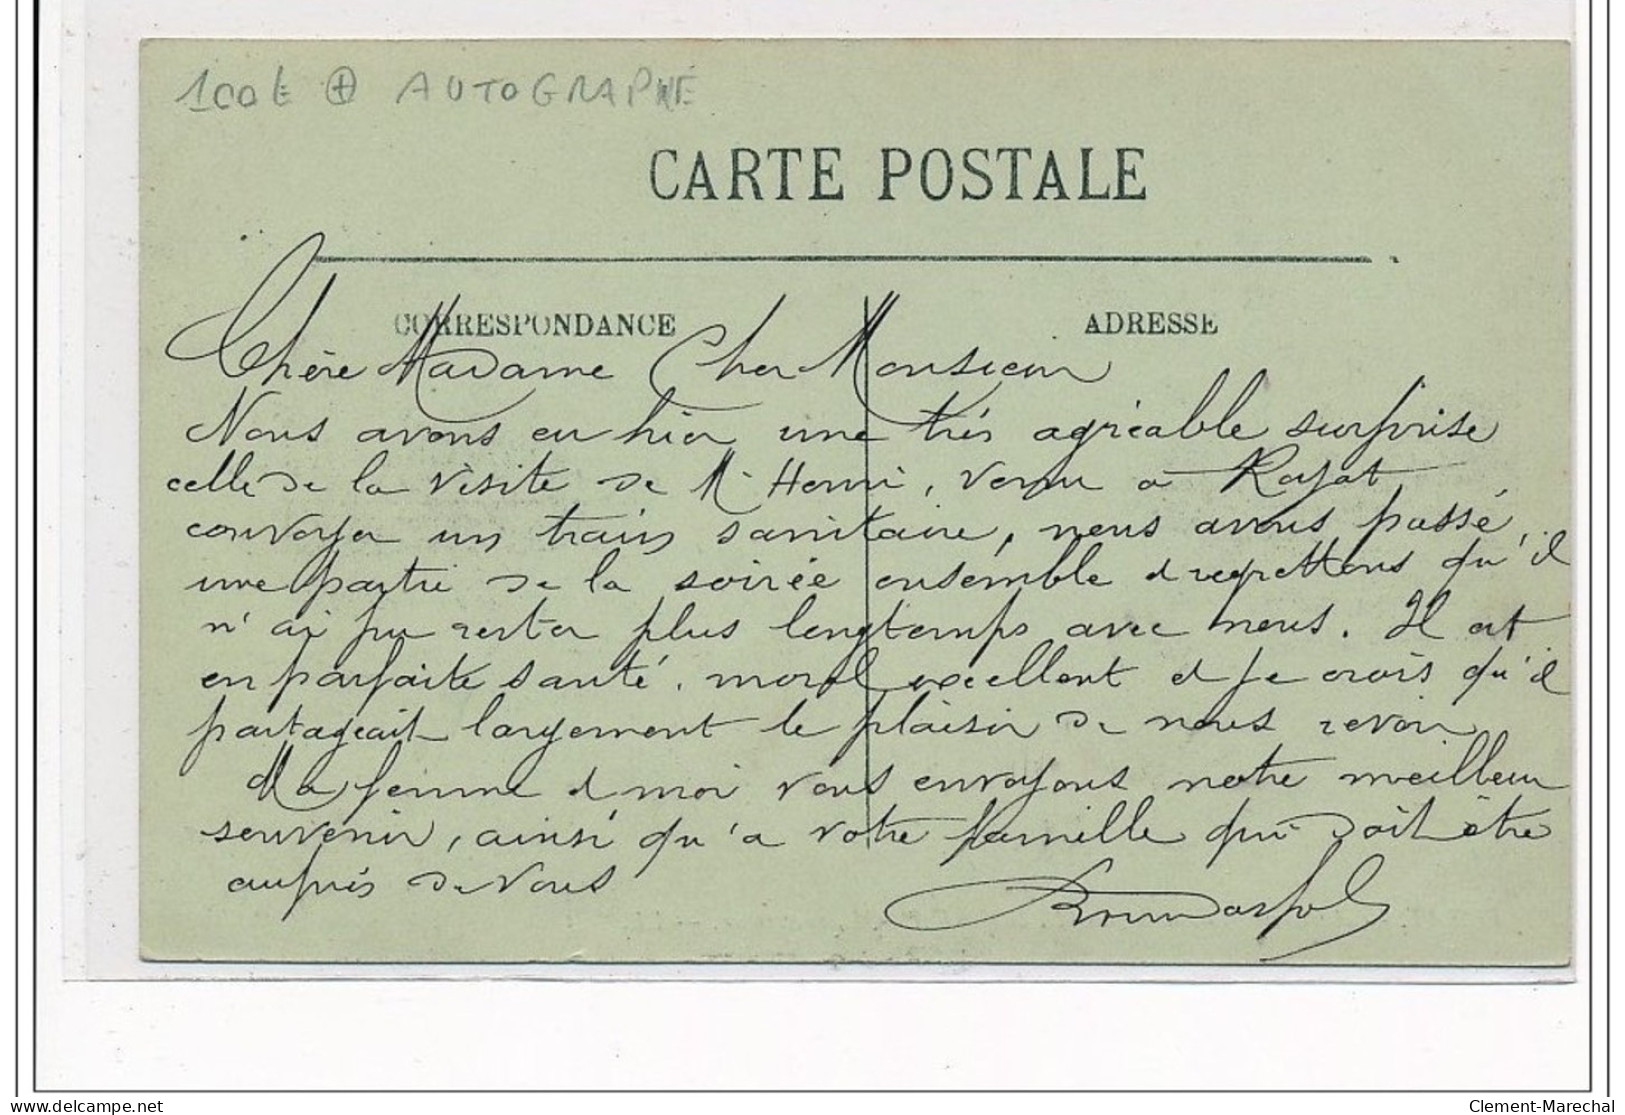 100 € + AUTOGRAPHE
CARTE POSTALE
CORRESPONDANCE
ADRESSE
Chère Madame Cher Monsieur
Nous avons eu hier une très agréable surprise
celle de la visite de Mr Henri, venu à Royat
convoyer un train sanitaire, nous avons passé
une partie de la soirée ensemble et regrettons qu'il
n'ai pu rester plus longtemps avec nous. Il est
en parfaite santé, moral excellent et je crois qu'il
partageait largement le plaisir de nous revoir
Ma femme et moi vous envoyons notre meilleur
souvenir, ainsi qu'a votre famille qui doit être
auprès de vous
delcampe.net
Clement-Marechal